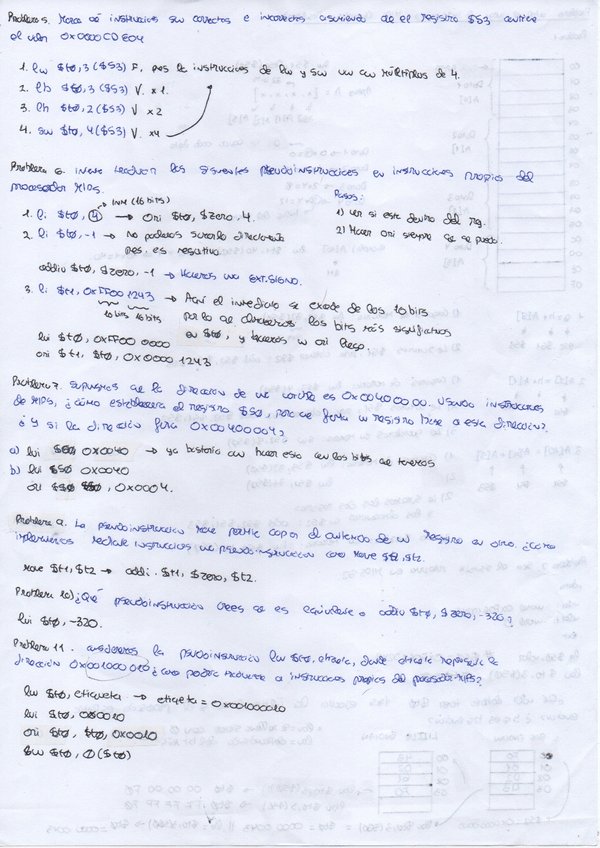 Problema 5. Marca qué instrucciones son correctas e incorrectas asumiendo que el registro $S3 contiene
el valor 0x0000CDE04
1. lw $t0, 3($S3) F, pues la instrucciones de lw y sw van con múltiplos de 4.
2. lb $t0, 3($S3) V. x 1.
3. lh $t0, 2($S3) V x2
4. sw $t0, 4($S3) V. x4
Problema 6. traducir las siguientes pseudoinstrucciones en instrucciones propias del
procesador MIPS.
INM (16 bits)
1. li $t0, 4 → Ori $t0, $zero, 4.
2. li $t0, -1 → No podemos directamente
pues es negativo
addiu $t0, $zero, -1 → Hacemos una EXT. SIGNO.
Pasos:
1) Ver si este dentro del
2) Hacer ori siempre que se pueda.
3. li $t1, 0xFF001243 → Aquí el inmediato se excede de los 16 bits
16 bits 16 bits
por lo que los bits más significativos
en $t0, y hacemos un ori luego.
lui $t0, 0xFF00 0000
ori $t1, $t0, 0x0000 1243
Problema 7. Supongamos que la dirección de una variable es 0x00400000. Usando instrucciones
de MIPS, ¿cómo establecera el registro $S0, para que tenga un registro base a esta dirección?
¿Y si la dirección fuera 0x00400004?
a) lui $S0 0x0040 → ya bastaría con hacer esto con los bits que tenemos
b) lui $S0 0x0040
ori $S0, 0x0004.
Problema 9. La pseudoinstrucción move permite copiar el contenido de un registro en otro. ¿Cómo
mediante instrucciones una pseudoinstrucción como move $t1, $t2.
move $t1, $t2 → addi. $t1, $zero, $t2.
Problema 10) ¿Qué pseudoinstrucción crees que es equivalente a addiu $t0, $zero, -320?
lui $t0, -320.
Problema 11. consideremos la pseudoinstrucción lw $t0, etiqueta, donde etiqueta representa la
dirección 0x001000010 ¿cómo podría traducirse a instrucciones propias del procesador MIPS?
lw $t0, etiqueta → etiqueta = 0x001000010
lui $t0, 0x0010
ori $t0, $t0, 0x0010
lw $t0, 0($t0)